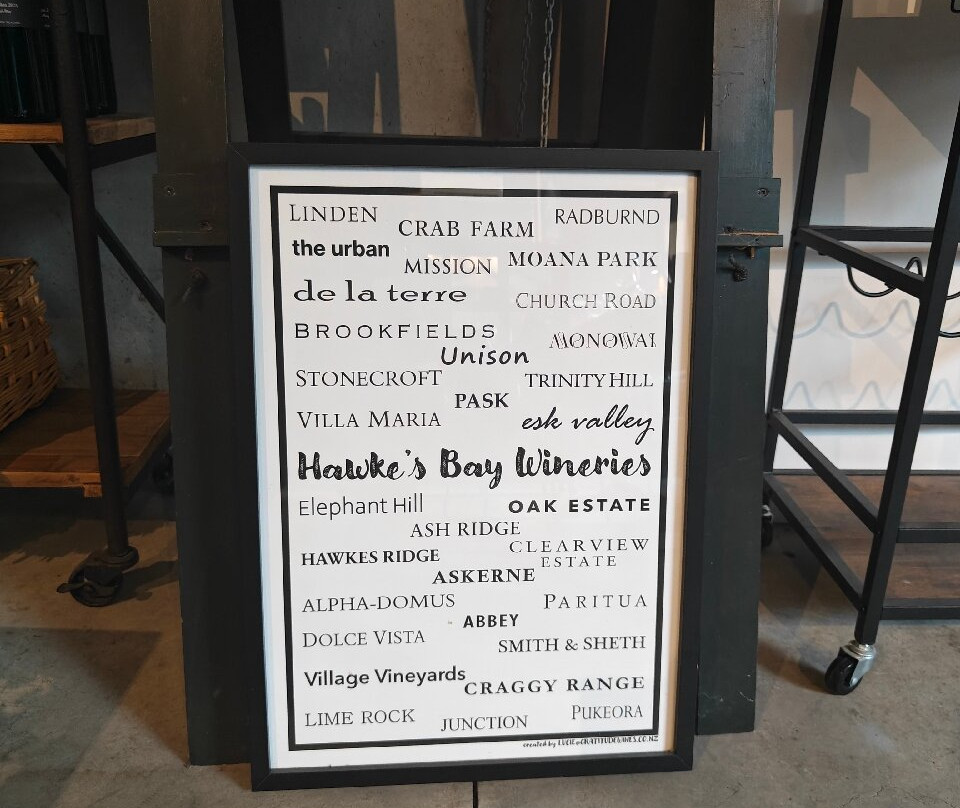 LINDEN
CRAB FARM
RADBURND
the urban
MISSION
MOANA PARK
de la terre
CHURCH ROAD
BROOKFIELDS
MONOWAI
Unison
STONECROFT
TRINITY HILL
PASK
VILLA MARIA
esk valley
Hawke's Bay Wineries
Elephant Hill
OAK ESTATE
ASH RIDGE
HAWKES RIDGE
CLEARVIEW
ESTATE
ASKERNE
ALPHA-DOMUS
PARITUA
ABBEY
DOLCE VISTA
SMITH & SHETH
Village Vineyards
CRAGGY RANGE
LIME ROCK
JUNCTION
PUKEORA
created by